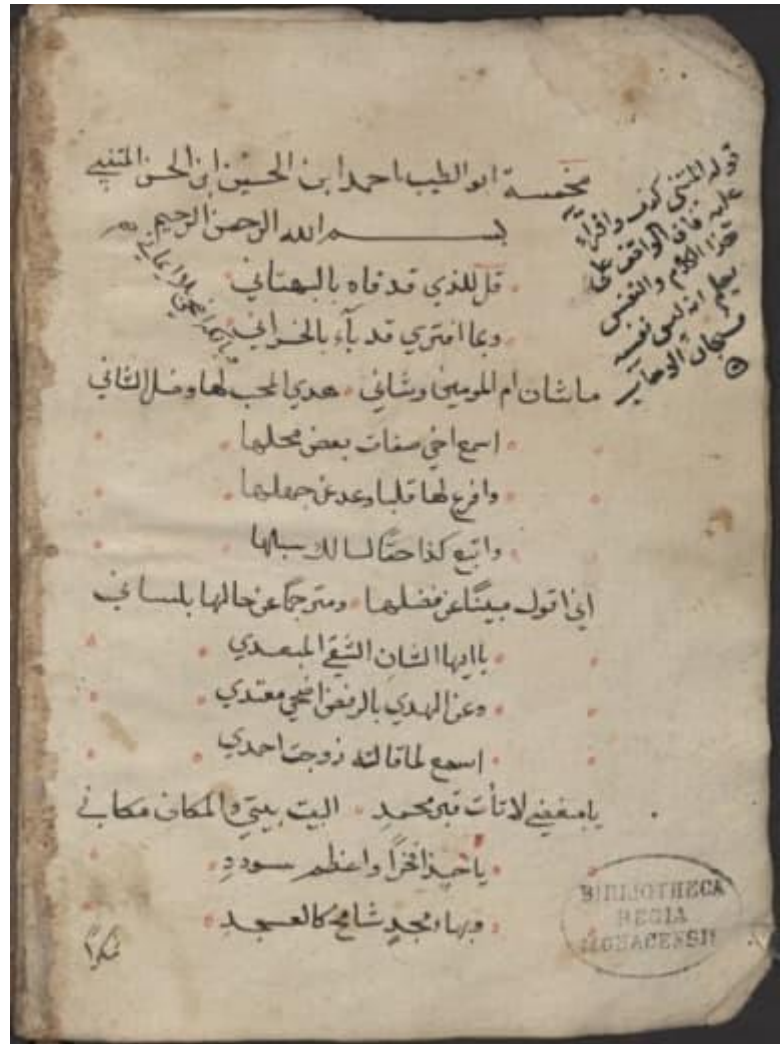 مخمسة ابو الطيب احمد ابن الحسين ابن الحسن المتنبي
بسم الله الرحمن الرحيم
قل للذي قد فاه بالبهتاني
وبما افتري قد بآء بالخسراني
ما شان ام المومنين وشاني هدي المحب لها وضل الشاني
اسمع اخي صفات بعض محلها
وافرغ لها قلبا وعد عن جهلها
واتبع كذا حقا لسالك سبلها
اني اقول مبينًا عن فضلها ومترجمًا عن حالها بلساني
يا ايها الشانِ الشقي المبعدي
وعن الهدي بالرفض اضحي معتدي
اسمع لما قالته زوجت احمدي
يا مبغضي لا تأت قبر محمدٍ البيت بيتي والمكان مكاني
يا حبذا فخرًا واعظم سوددٍ
وبهاء ومجدٍ شامخ كالعسجد
قوله المتنبي كذب وافتراء
عليه فان الواقف على
هذا الكلام والنفس
انه ليس نفسه
BIBLIOTHECA
REGIA
MONACENSIS